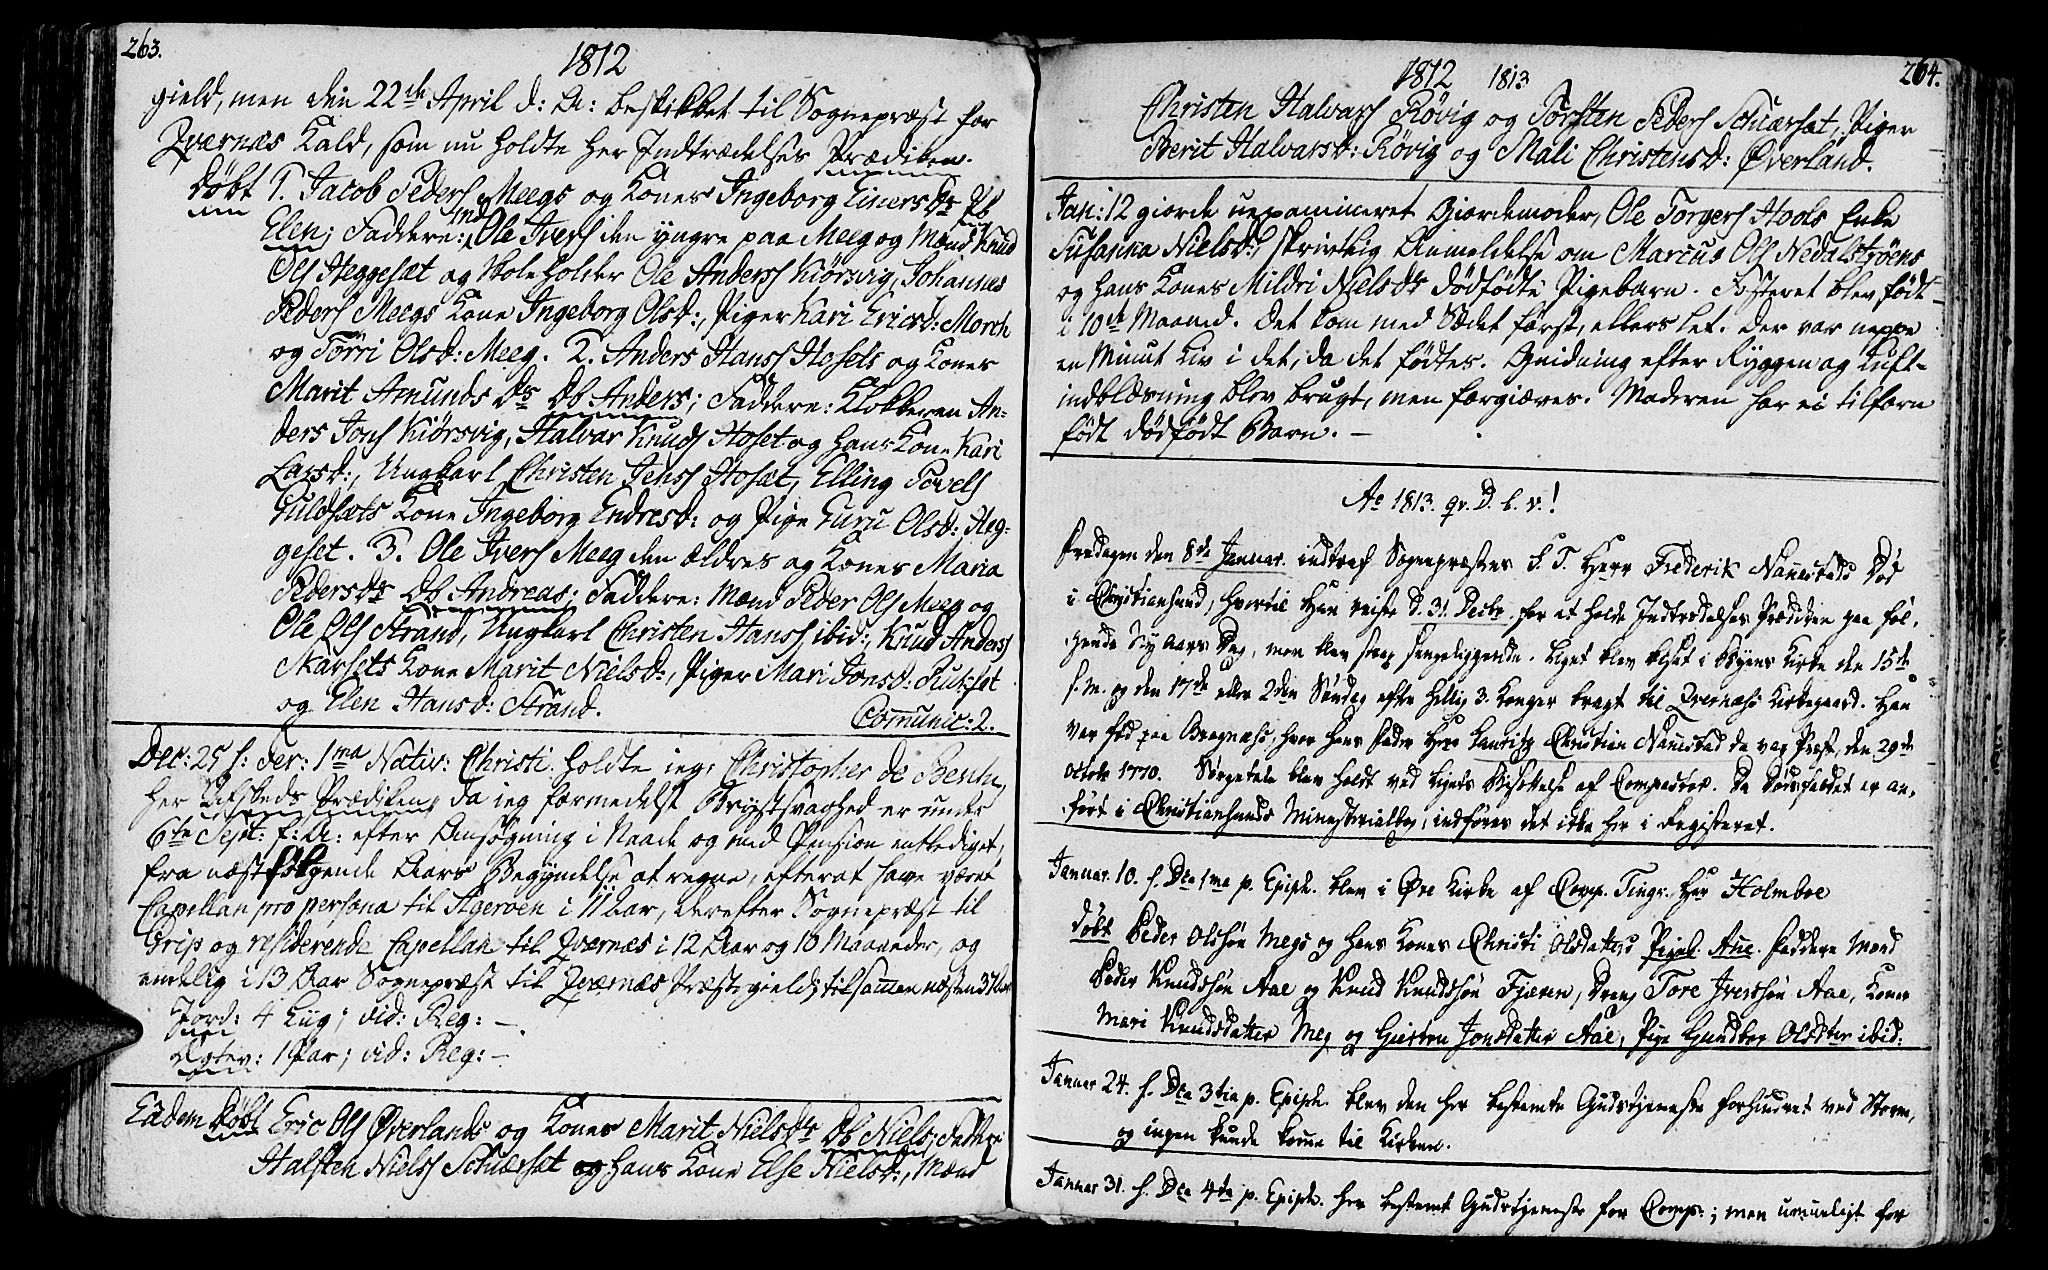 263.
1812
gield, men den 22de April d: A: beskikket til Sognepræst for
Qvernæs Kald, som nu holdte her Indtrædelses Prædiken.
Døbt 1. Jacob Peders Meegs og Kones Ingeborg Einersdr Pb
Elen; Faddere: Md Ole Ivers den yngre paa Meeg og Mænd Knud
Ols Heggesæt og Skoleholder Ole Anderss Kiørsvig, Johannes
Peders Meegs Kone Ingeborg Olsd:, Piger Kari Ericsd: Morch
og Torri Olsd: Meeg. 2. Anders Hanss Hosets og Kones
Marit Amunds Dr Db Anders; Faddere: Klokkeren An-
ders Jons Kiørsvig, Halvar Knuds Hoset og hans Kone Kari
Larsd:, Ungkarl Christen Jenss Hosæt, Elling Povels
Guldsæts Kone Ingeborg Endresd: og Pige Guru Olsd: Heg-
geset. 3. Ole Ivers Meeg den ældres og Kones Maria
Pedersdr Db Andreas; Faddere: Mænd Peder Ols Meeg og
Ole Ols Strand, Ungkarl Christen Hanss ibid:, Knud Anders
Nærsets Kone Marit Nielsd:, Piger Mari Jonsd: Fuksæt
og Elen Hansd: Strand.
Comunic: 2.
Dec: 25 f: Fer: 1ma Nativ: Christi holdte ieg, Christopher de Besche,
her Afskeds Prædiken, da ieg formedelst Brystsvaghed er under
6te Sept: f: A: efter Ansøgning i Naade og med Pension entlediget,
fra næstfølgende Aars Begyndelse at regne, efterat have været
Capellan pro persona til Agerøen i 11 Aar, derefter Sognepræst til
Grip og residerende Capellan til Qvernæs i 12 Aar og 10 Maaneder, og
endelig i 13 Aar Sognepræst til Qvernæs Præstegield; tilsamen næsten 37 Aar
Jord: 4 Liig; vid: Reg: -.
Ægtev: 1 Par; vid: Reg: -
Eodem Døbt Eric Ols Øverlands og Kones Marit Nielsdr Db Niels; Faddere:
Halsten Nielss Schuersæt og hans Kone Else Nielsd:, Mænd
1812 1813
264.
Christen Halvars Røvig og Torsten Peders Schuersæt, Piger
Berit Halvarsd: Røvig og Mali Christensd: Øverland.
Jan: 12 giorde uexamineret Giordemoder, Ole Torgers Hools Enke
Susanna Nielsd: skrivtlig Anmeldelse om Marcus Ols Nedalstrøens
og hans Kones Mildri Nielsdr dødfødte Pigebarn. Fosteret blev født
i 10de Maaned. Det kom med Sædet først, ellers let. Der var neppe
en Minut Liv i det, da det fødtes. Gnidning efter Ryggen og Luft-
indblæsning blev brugt, men forgiæves. Moderen har ei tilforn
født dødfødt Barn. -
Ao 1813. qv. D. b. v.!
Fredagen den 8de Januar. indtraf Sognepræsten S. T. Herr Frederik Nannestads Død
i Christiansund, hvortil Han reiste d. 31 Decbr. for at holde Indtrædelses Prædiken paa føl-
gende Ny Aars Dag, men blev strax sengeliggende. Liget blev bisat i Byens Kirke den 15de
s. m. og den 17de eller 2den Søndag efter Hellig 3. Konger bragt til Qvernæs Kirkegaard. Han
var fød paa Bragnæs, hvor hans Fader Herr Lauritz Christian Nannestad da var Præst, den 29de
Octobr 1770. Sørgetale blev holdt ved Ligets Bisættelse af Compastor. Da Dødsfaldet er an-
ført i Christiansunds Ministerialbog, indføres det ikke her i Registeret.
Januar. 10. f. Dca 1ma p. Epiph. blev i Øre Kirke af Comp. Tingv. Herr Holmboe
døbt Peder Olssøn Megs og hans Kones Christi Olsdatters Pigeb. Ane. Faddere Mænd
Peder Knudssøn Aae og Knud Knudssøn Fjæren, Dreng Tore Iverssøn Aae, Koner
Mari Knudsdatter Meg og Giertru Jonsdatter Aae, Pige Gundbor Olsdter ibid:
Januar 24. f. Dca 3tia p. Epiph. blev den her bestemte Gudstjeneste forhindret ved Storm,
og ingen kunde komme til Kirken.
Januar 31. f. Dca 4ta p. Epiph. her bestemt Gudstjeneste for Comp:; men umueligt for